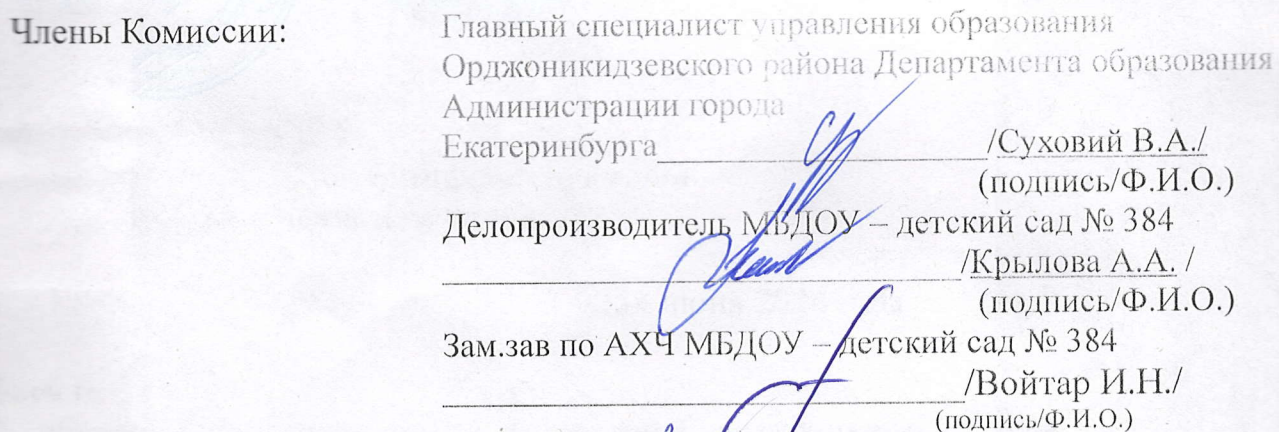 Члены Комиссии:
Главный специалист управления образования
Орджоникидзевского района Департамента образования
Администрации города
Екатеринбурга____________________/Суховий В.А./
(подпись/Ф.И.О.)
Делопроизводитель МБДОУ – детский сад № 384
________________________________/Крылова А.А. /
(подпись/Ф.И.О.)
Зам.зав по АХЧ МБДОУ – детский сад № 384
________________________________/Войтар И.Н./
(подпись/Ф.И.О.)